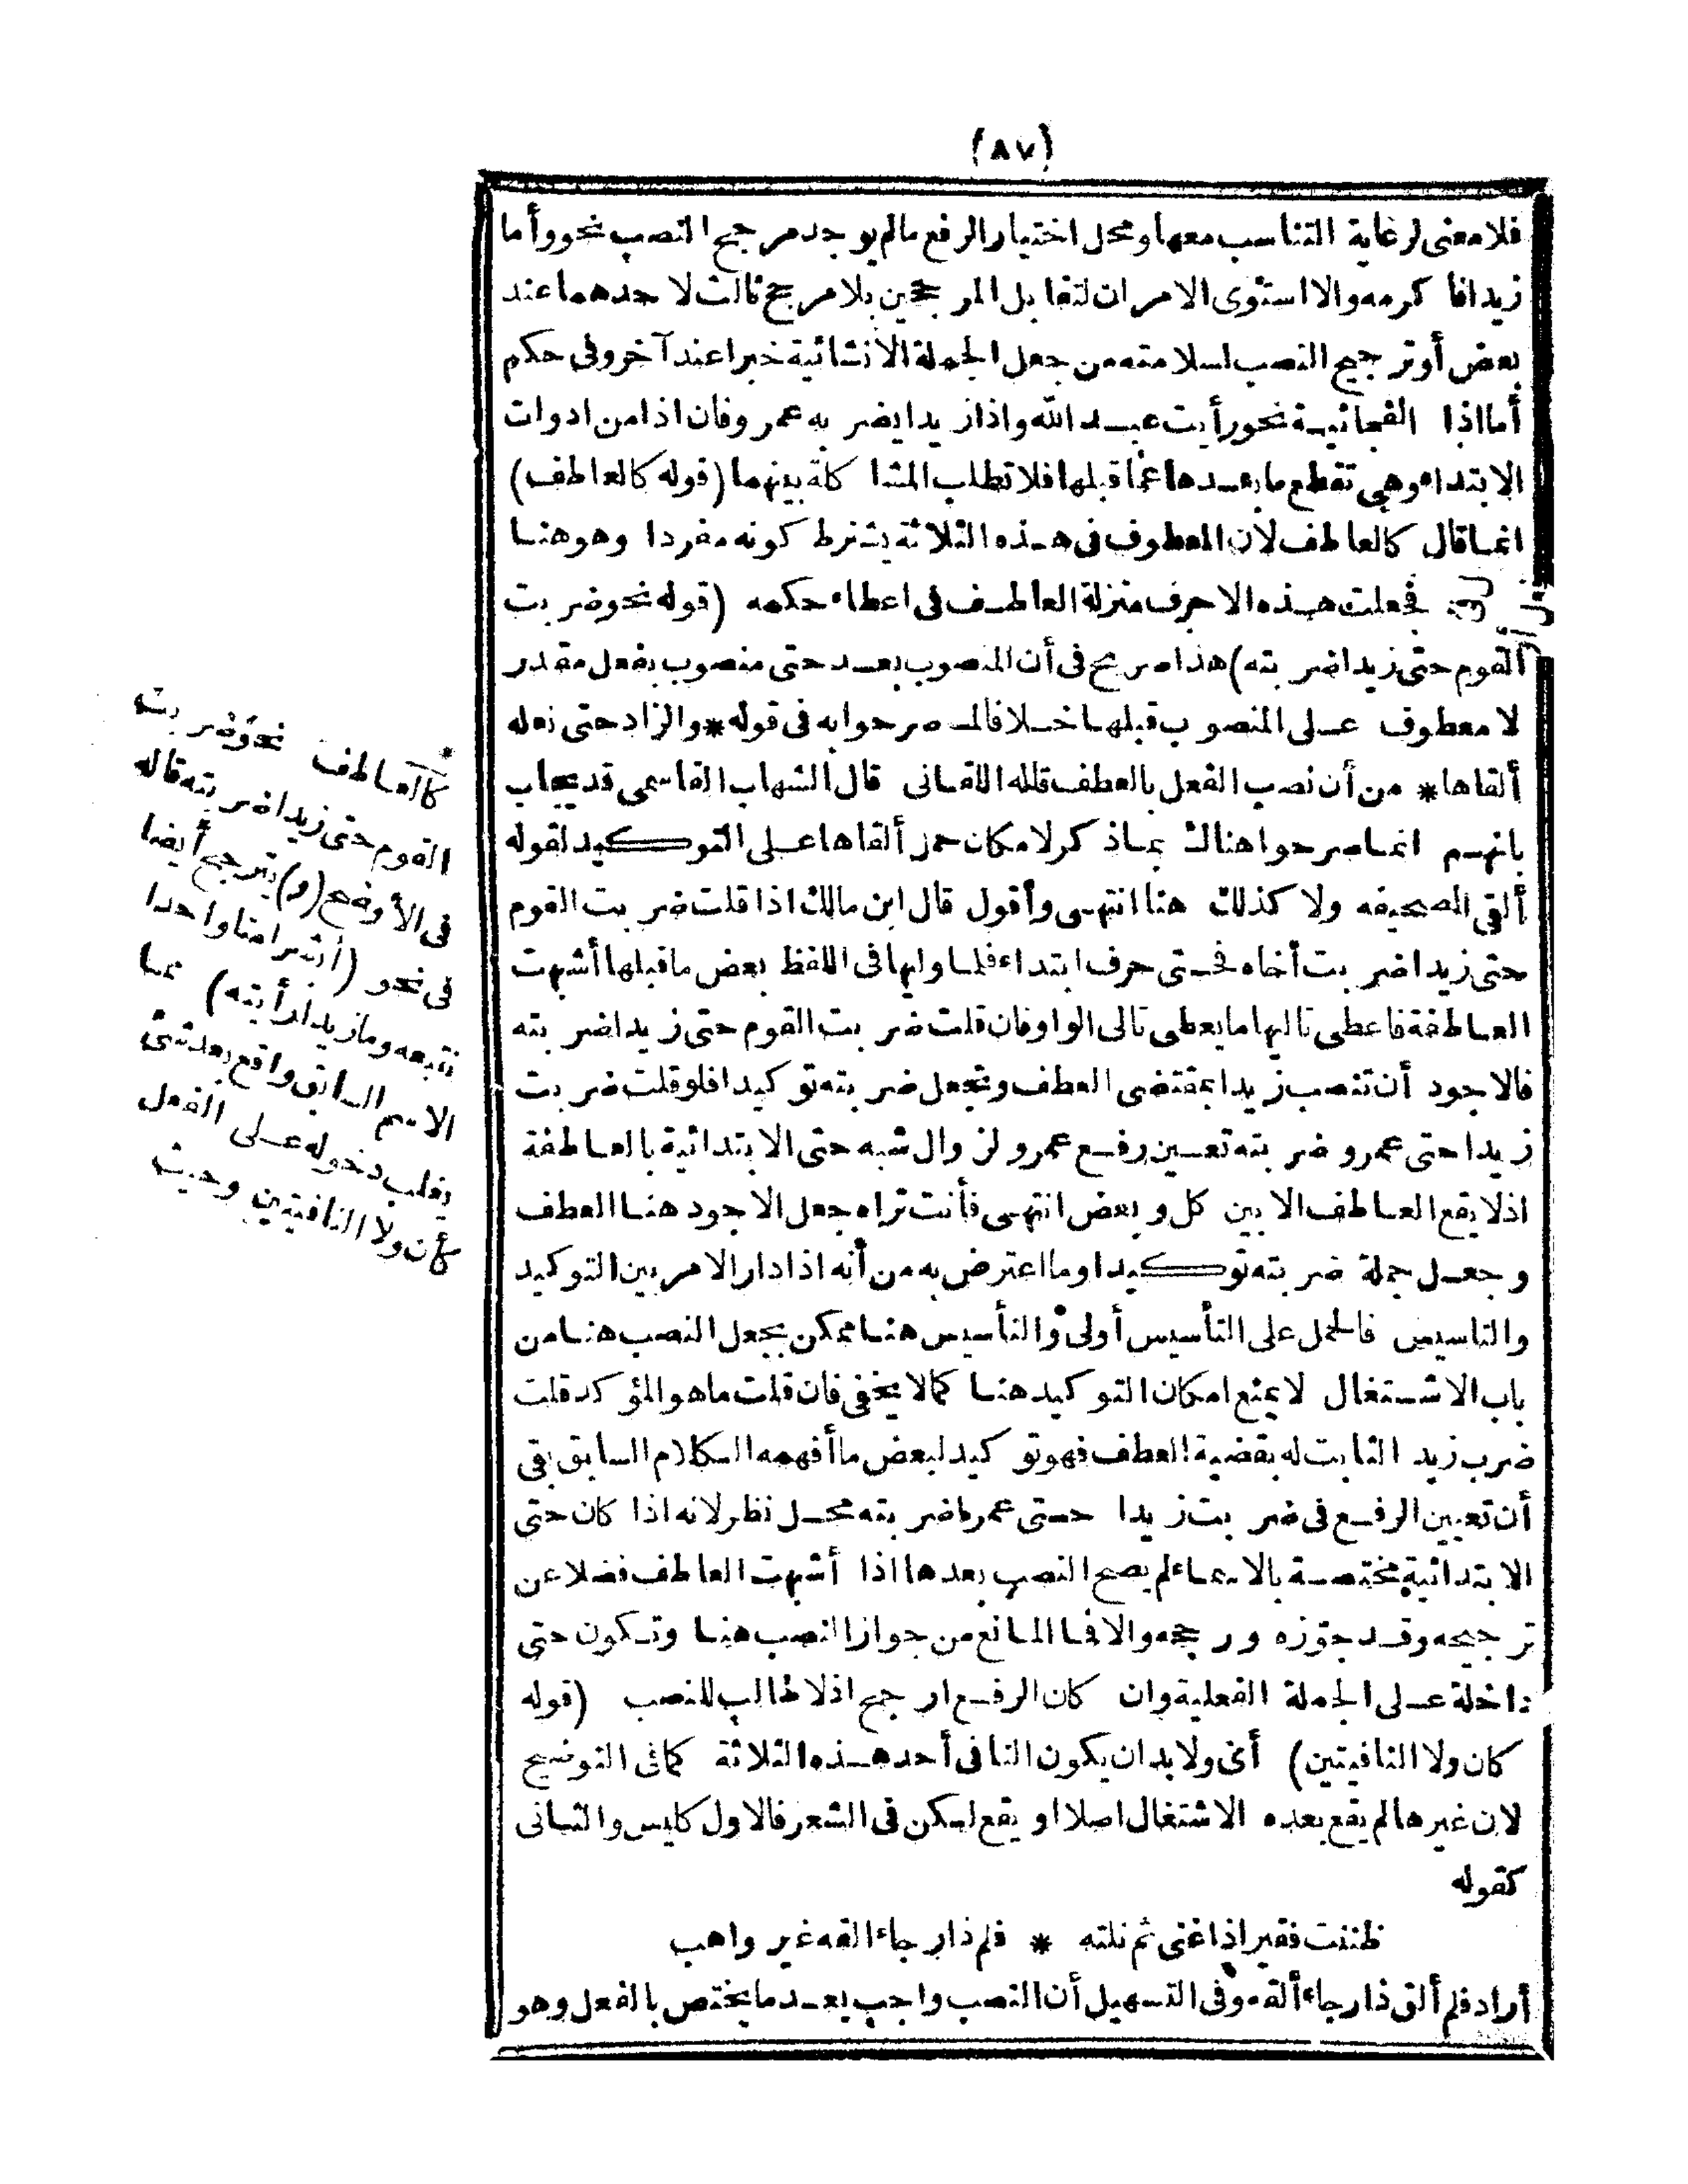 (٨٧)
فلا معنى لرعاية التناسب معها ومحل اختيار الرفع مالم يوجد مرجح النصب نحو وأما
زيدا فا كرمه والا استوى الامران لتقابل المرجحين بلا مرجح ثالث لا حدهما عند
بعض أو ترجيح النصب لسلامته من جعل الجملة الانشائية خبرا عند آخر وفى حكم
أما اذا الفجائية نحو رأيت عبد الله واذا زيدا يضربه عمرو فان اذا من ادوات
الابتداء وهى تقطع ما بعدها عما قبلها فلا تطلب المشا كلة بينهما (قوله كالعاطف)
انما قال كالعاطف لان المعطوف فى هذه الثلاثة يشترط كونه مفردا وهو هنا
فجعلت هذه الاحرف منزلة العاطف فى اعطاء حكمه (قوله نحو ضربت
القوم حتى زيدا ضربته) هذا صريح فى أن المنصوب بعد حتى منصوب بفعل مقدر
لا معطوف على المنصوب قبلها خلافا لما صرحوا به فى قوله * والزاد حتى نعله
ألقاها * من أن نصب الفعل بالعطف قلله اللقانى قال الشهاب القاسمى قد يجاب
بانهم انما صرحوا هناك بماذ كر لا مكان حمل ألقاها على التوكيد لقوله
ألقى الصحيفه ولا كذلك هنا انتهى وأقول قال ابن مالك اذا قلت ضربت القوم
حتى زيدا ضربت أخاه فحتى حرف ابتداء فلما وليها فى اللفظ بعض ما قبلها أشبهت
العاطفة فاعطى تاليها ما يعطى تالى الواو فان قلت ضربت القوم حتى زيدا ضربته
فالاجود أن تنصب زيدا بمقتضى العطف وتجعل ضربته توكيدا فلو قلت ضربت
زيدا حتى عمرو ضربته تعين رفع عمرو لزوال شبه حتى الابتدائية بالعاطفة
اذ لا يقع العاطف الا بين كل و بعض انتهى فأنت تراه جعل الاجود هنا العطف
وجعل جملة ضربته توكيدا وما اعترض به من أنه اذا دار الامر بين التوكيد
والتاسيس فالحمل على التأسيس أولى والتأسيس هنا ممكن بجعل النصب هنا من
باب الاشتغال لا يمنع امكان التوكيد هنا كما لا يخفى فان قلت ما هو المؤكد قلت
ضرب زيد الثابت له بقضية العطف فهو توكيد لبعض ما أفهمه الكلام السابق بقى
أن تعيين الرفع فى ضربت زيدا حتى عمرو ضربته محل نظر لانه اذا كان حتى
الابتدائية مختصة بالاسماء لم يصح النصب بعدها اذا أشبهت العاطف فضلا عن
ترجيحه وقد جوزه ورجحه والا فما المانع من جواز النصب هنا وتكون حتى
داخلة على الجملة الفعلية وان كان الرفع ارجح اذ لا طالب للنصب (قوله
كان ولا النافيتين) أى ولا بد ان يكون النافى أحد هذه الثلاثة كما فى التوضيح
لان غيرها لم يقع بعده الاشتغال اصلا او يقع لكن فى الشعر فالاول كليس والثانى
كقوله
ظننت فقيرا ذا غنى ثم نلته * فلم ذا رجاء القه غير واهب
أراد فلم ألق ذا رجاء ألقه وفى التسهيل أن النصب واجب بعد ما يختص بالفعل وهو
* كالعاطف نحو ضربت
القوم حتى زيدا ضربته قاله
فى الأوضح (و) يترجح أيضا
فى نحو (أبشرا منا واحدا
نتبعه وما زيدا رأيته) مما
الاسم السابق واقع بعد شئ
يغلب دخوله على الفعل
كأن ولا النافيتين وحيث